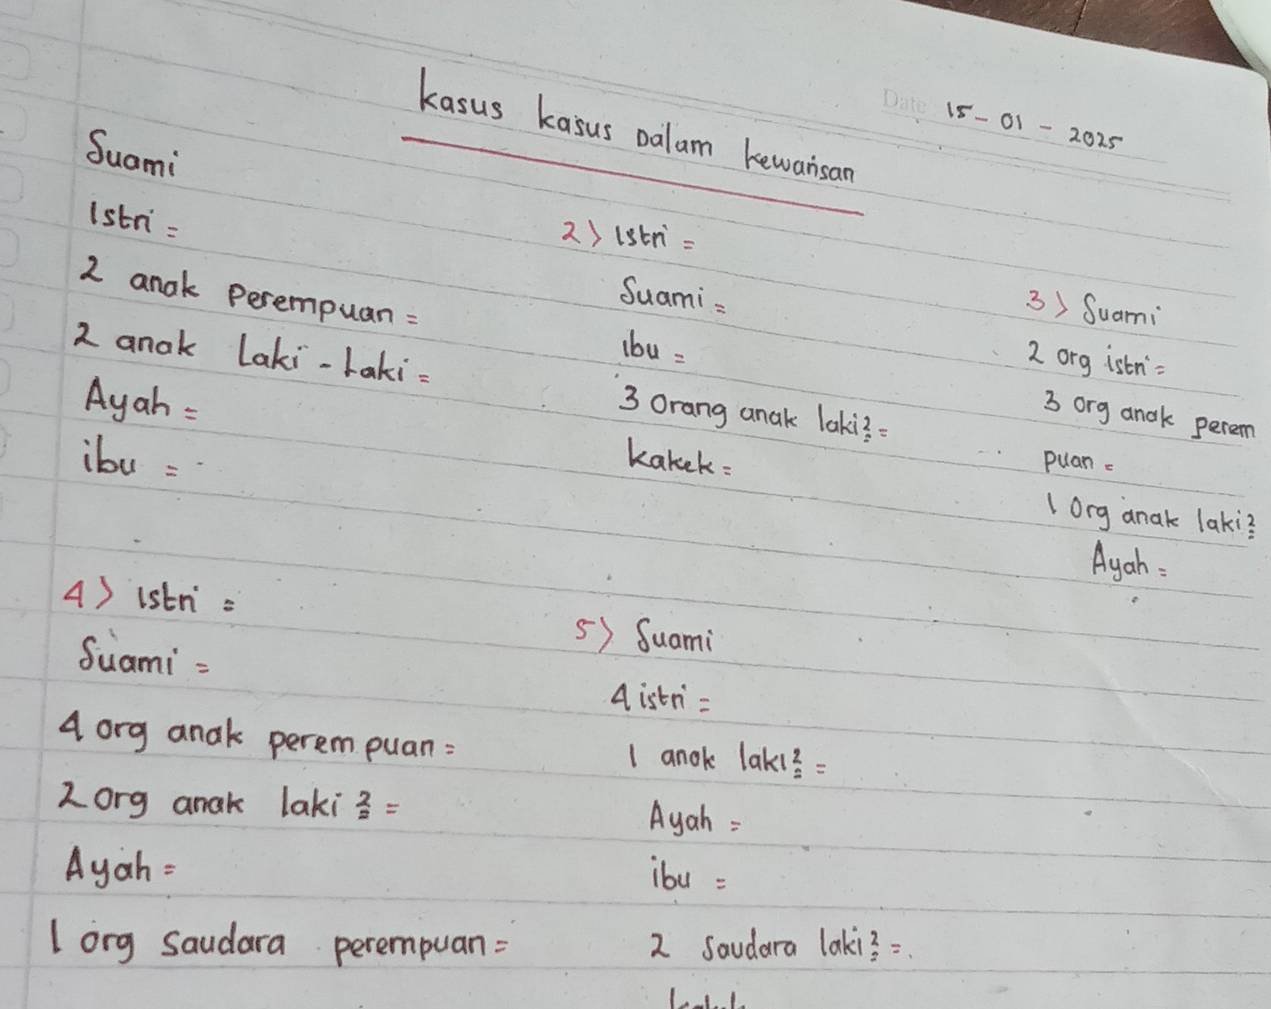 Date 15-01-2025
kasus kasus Dalam kewarisan
Suami
Istri =
2 anak Perempuan =
2 anak Laki-Laki =
Ayah =
ibu =
2) Istri =
Suami =
Ibu =
3 Orang anak laki2 =
kakek =
3) Suami
2 org istri =
3 org anak perem
puan =
1 Org anak laki2
Ayah =
4) Istri =
Suami =
4 org anak perempuan =
2 org anak laki2 =
Ayah =
1 org saudara perempuan =
5) Suami
4 istri =
1 anak laki2 =
Ayah =
ibu =
2 Saudara laki2 =.